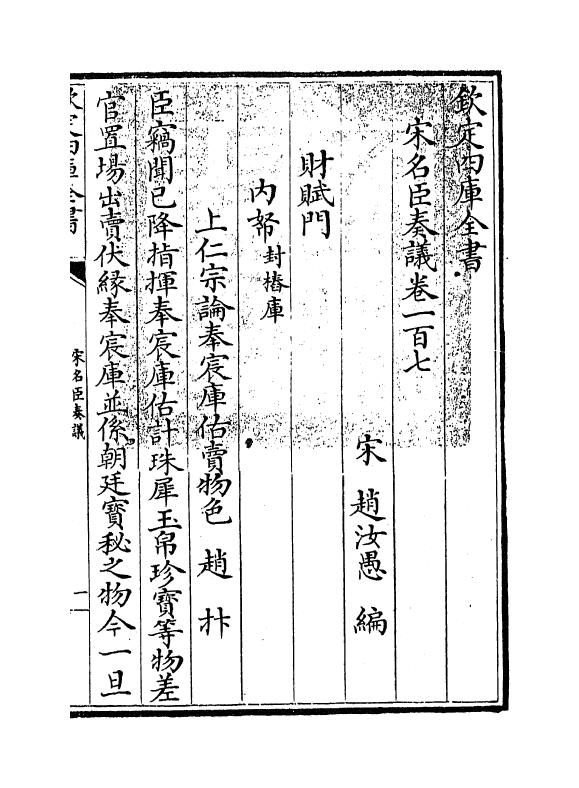 欽定四庫全書
宋名臣奏議卷一百七
宋 趙汝愚 編
財賦門
内帑封樁庫
上仁宗論奉宸庫估賣物色 趙抃
臣竊聞已降指揮奉宸庫估計珠犀玉帛珍寶等物差
官置場出賣伏縁奉宸庫並係朝廷寶秘之物今一旦
欽定四庫全書
宋名臣奏議
一